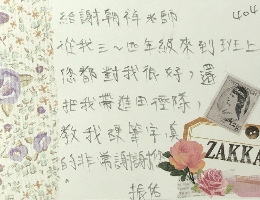 給謝朝祥老師
404
從我三~四年級來到班上
您都對我很好，還
把我帶進田徑隊，
教我
的非常謝謝你
。
ZAKKA